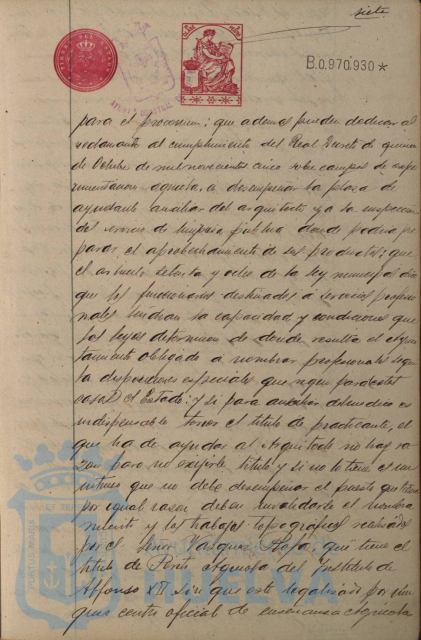 siete
B.0.970.930*
para el procomun; que ademas pueden dedicar al
reclamante al cumplimiento del Real Decreto de quince
de Octubre de mil novecientos cinco sobre campos de expe
rimentacion aquella, a desempeñar la plaza de
ayudante auxiliar del arquitecto y a la inspeccion
del servicio de limpieza publica donde podria pre
parar el aprobechamiento de sus productos; que
el articulo setenta y ocho de la ley municipal dice
que los funcionarios destinados a servicios profesio
nales tendran la capacidad y condiciones que
las leyes determinen de donde resulta el Ayun
tamiento obligado a nombrar profesionales segun
las disposiciones especiales que rigen para estos
casos el Estado; y si para auxiliar
indispensable tener el titulo de practicante, el
que ha de ayudar al Arquitecto no hay ra
zon para no exijirle titulo y si no lo tiene es un
intruso que no debe desempeñar el puesto que
por igual razon deben invalidarse el nombra
miento y los trabajos topograficos realizados
por el Señor Vazquez que tiene el
titulo de Perito Agricola del Instituto de
Alfonso XII sin que este legalizado por nin
gun centro oficial de enseñanza Agricola
HUELVA